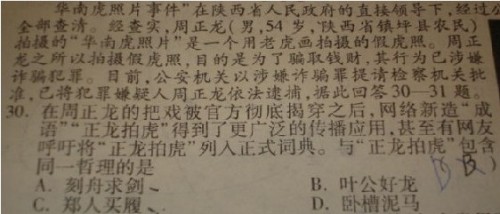 华南虎照片事件”在陕西省人民政府的直接领导下，经过
全部查清。经查实，周正龙（男，54岁，陕西省镇坪县农民）
拍摄的“华南虎照片”是一个用老虎画拍摄的假虎照。周正
龙之所以拍摄假虎照，目的是为了骗取钱财，其行为已涉嫌
诈骗犯罪。目前，公安机关以涉嫌诈骗罪提请检察机关批
准，已将犯罪嫌疑人周正龙依法逮捕，据此回答30—31题。
30. 在周正龙的把戏被官方彻底揭穿之后，网络新造“成
语”“正龙拍虎”得到了更广泛的传播应用，甚至有网友
呼吁将“正龙拍虎”列入正式词典。与“正龙拍虎”包含
同一哲理的是
B
A. 刻舟求剑 B. 叶公好龙
C. 郑人买履 D. 卧槽泥马